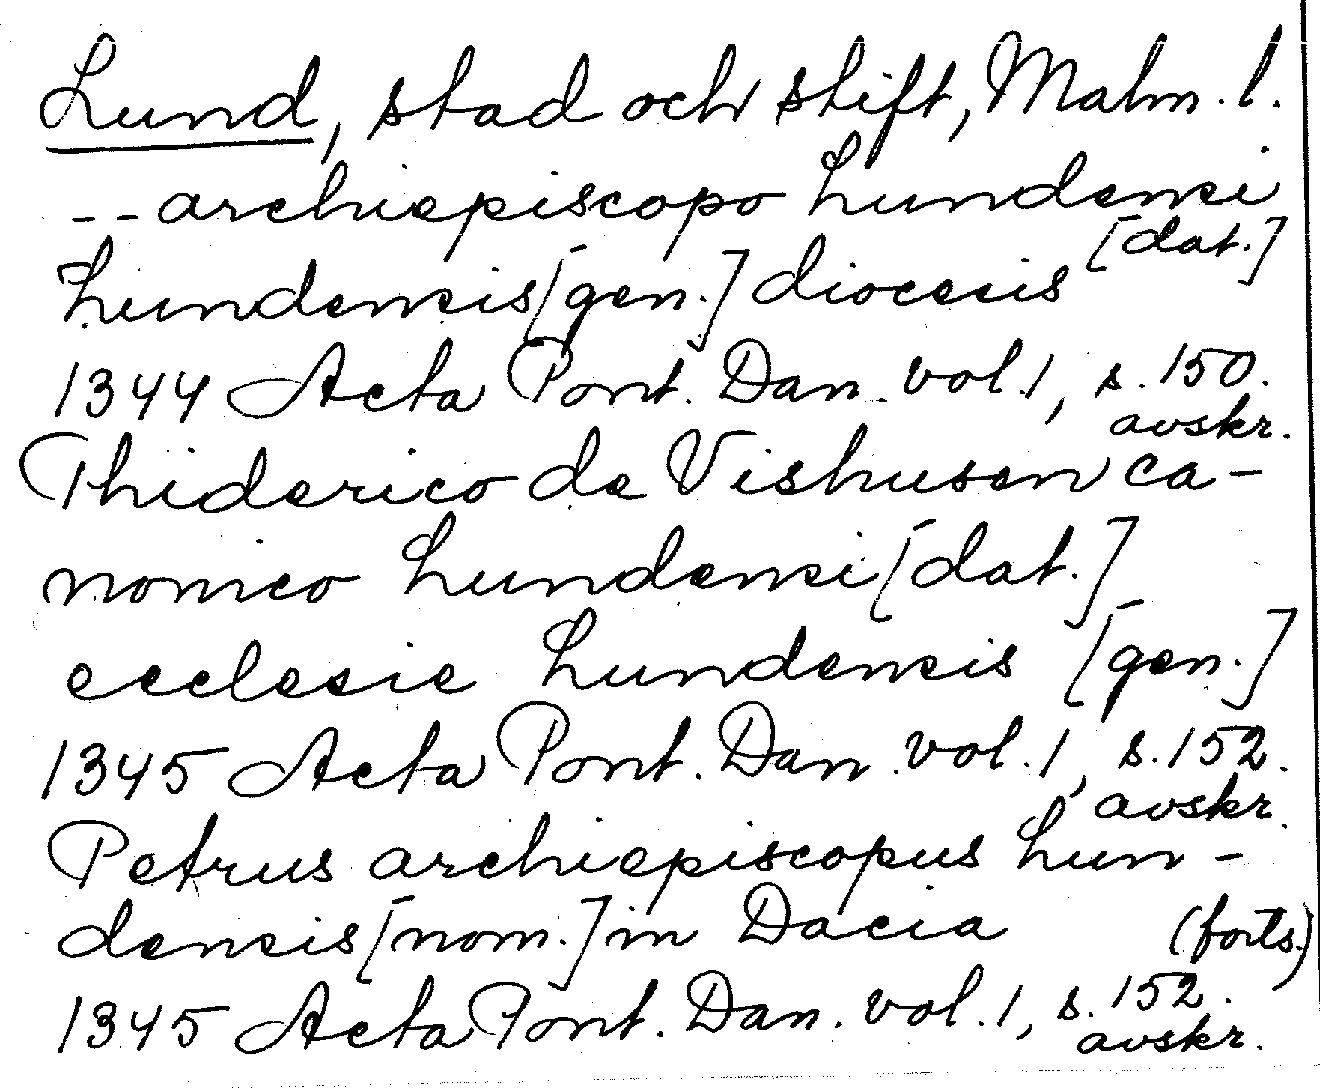 Lund, stad och stift, Malm. l.
-- archiepiscopo Lundensi
[dat.]
Lundensis [gen.] diocesis
1344 Acta Pont. Dan. vol. 1, s. 150.
avskr.
Thiderico de Vishusen ca-
nonico Lundensi [dat.]
ecclesie Lundensis [gen.]
1345 Acta Pont. Dan. vol. 1, s. 152.
avskr.
Petrus archiepiscopus Lun-
densis [nom.] in Dacia (forts.)
1345 Acta Pont. Dan. vol. 1, s. 152.
avskr.